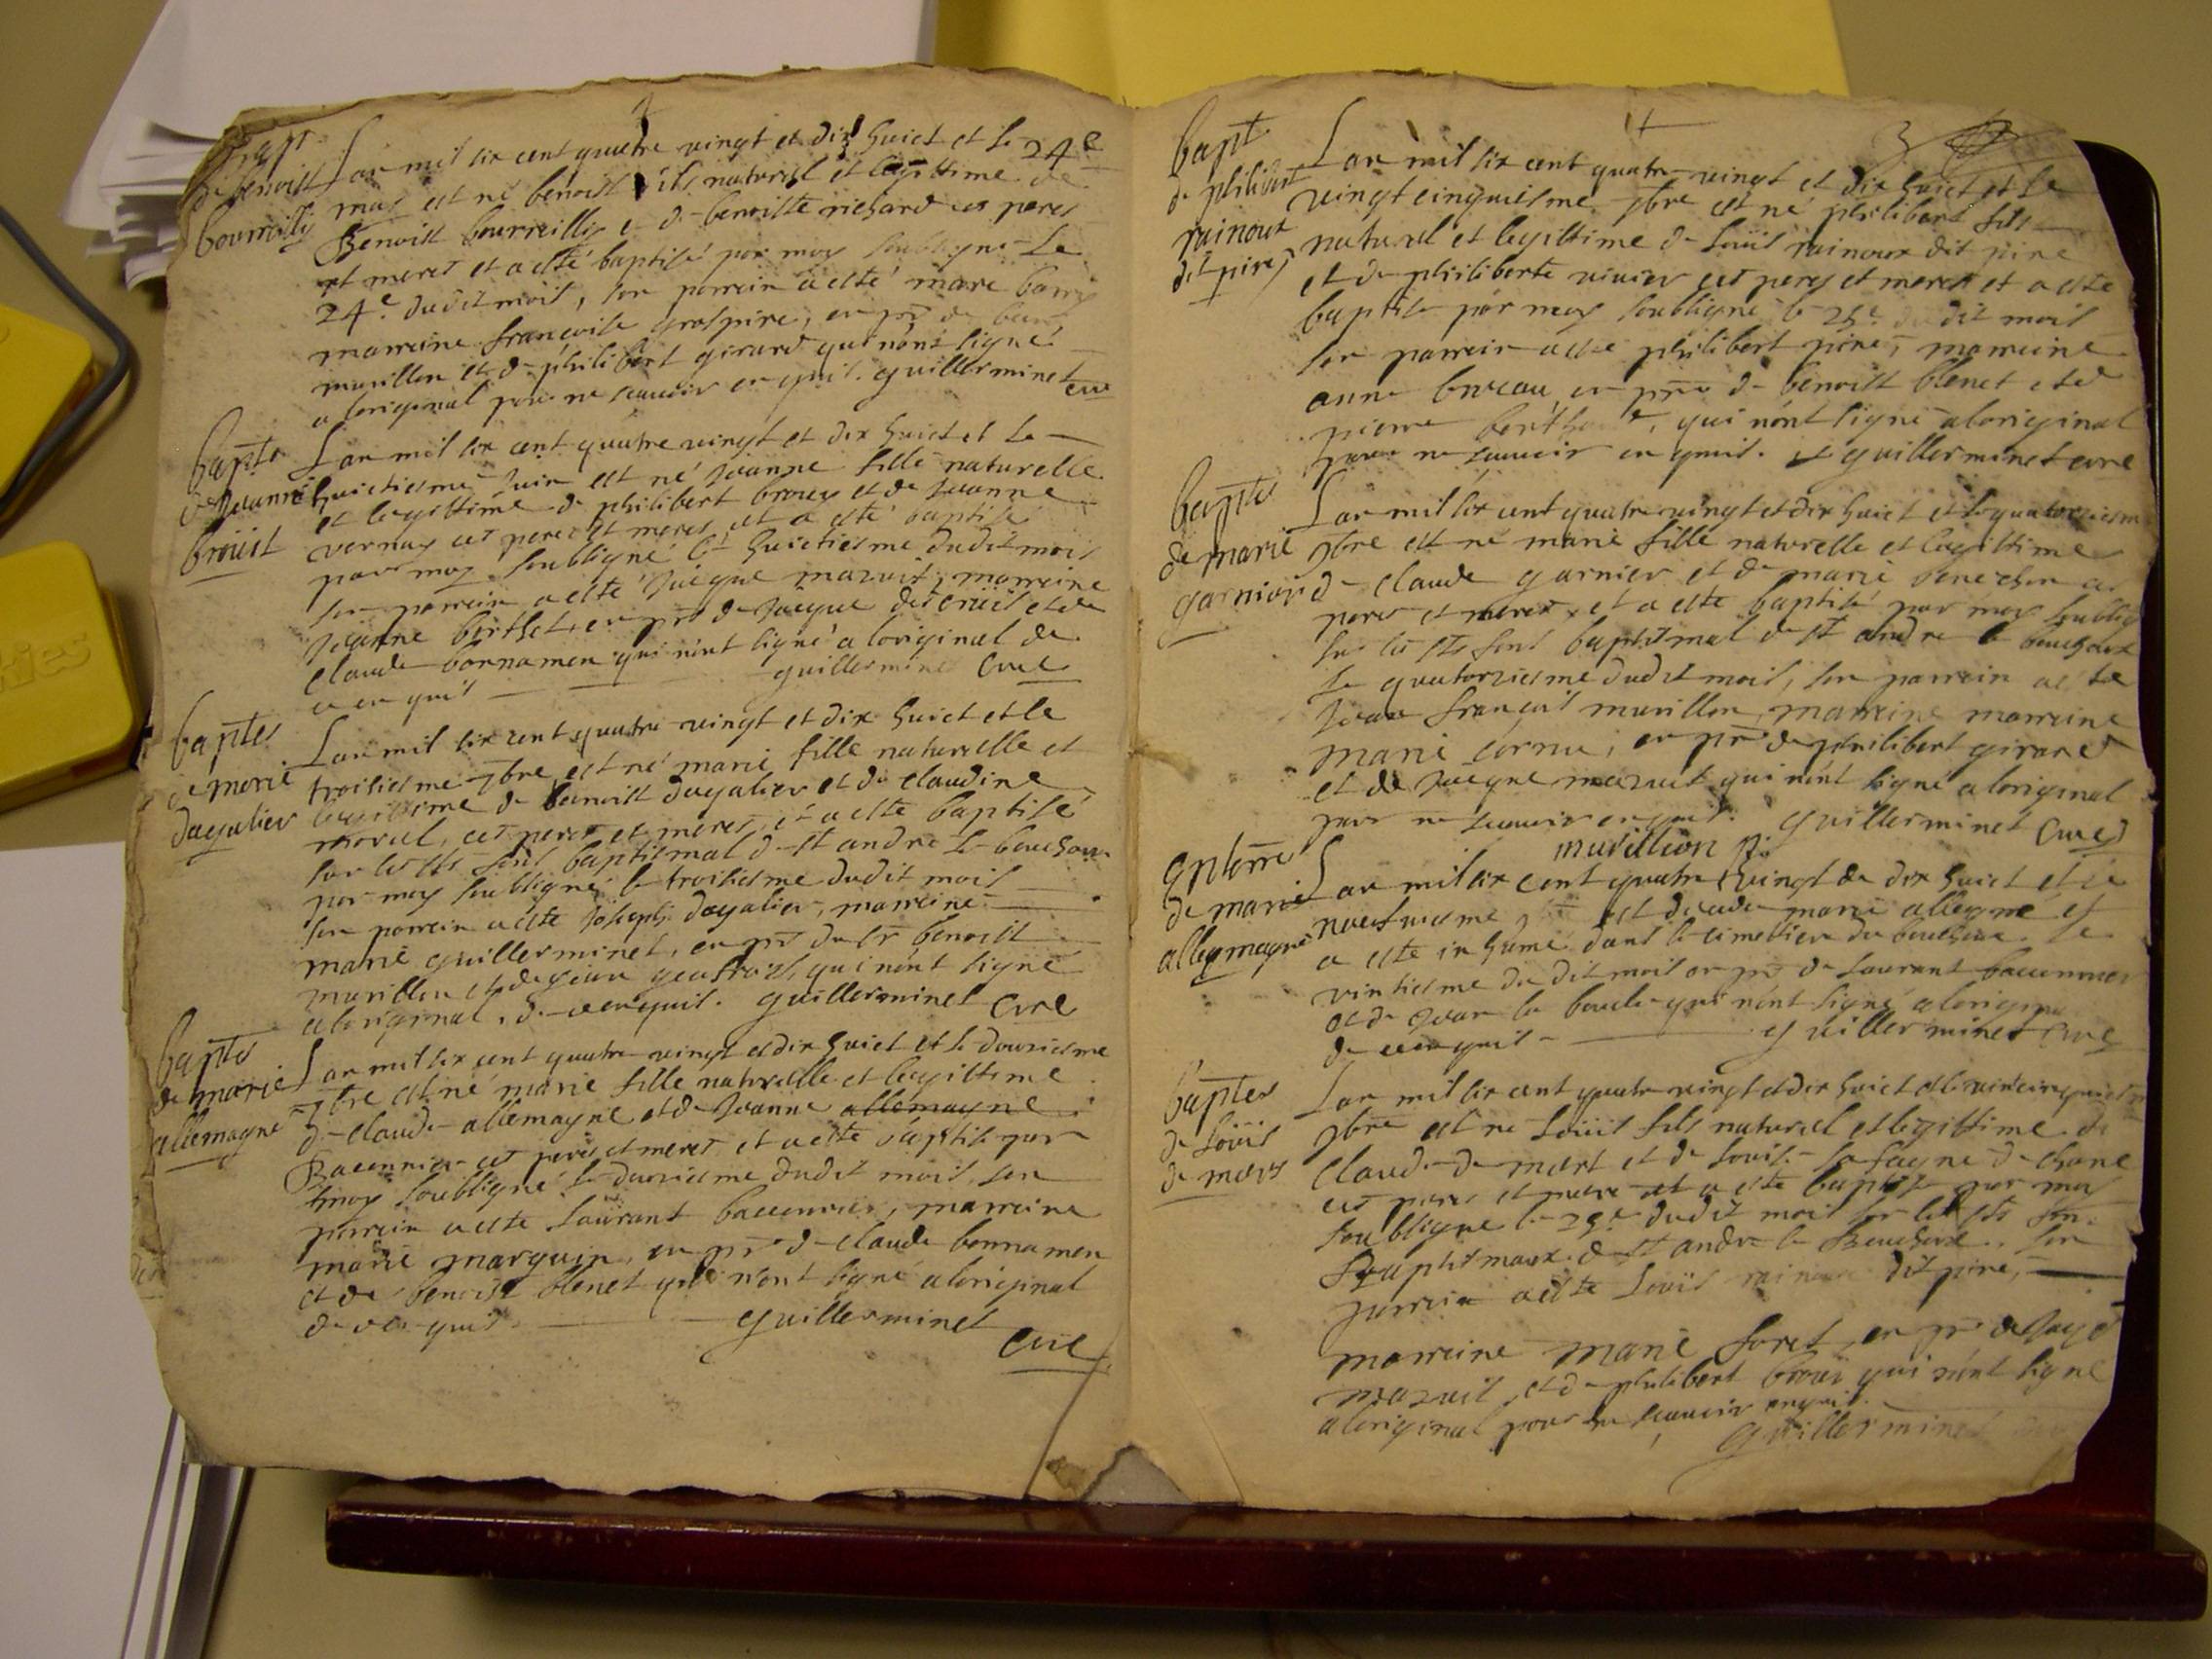 bapt
de benoist
bourreilly
Lan mil six cent quatre vingt et dix huict et le 24e
may est né benoist fils naturel et legittime de
Benoist bourreilly et de benoiste richard ces peres
et meres et a esté baptisé par moy soubsigné le
24e dudit mois, son parrein a esté marc
marreine françoise grospire, en pñce de
murillon et de philibert girard qui n'ont signé
a loriginal pour ne scauoir enquis. guillerminet curé
baptes
de Jeanne
brouist
Lan mil six cent quatre vingt et dix huict et le
huictiesme Juin est né Jeanne fille naturelle
et legittime de philibert brouy et de Jeanne
vernay ces peres et meres et a esté baptisé
par moy soubsigné le huictiesme dudit mois
son parrein a esté Jacque mazuit, marreine
Jeanne berthet, en pñce de Jacque descruis et de
Claude bonnamen qui n'ont signé a loriginal de
ce enquis guillerminet Curé
baptes
de marie
dagalier
Lan mil six cent quatre vingt et dix huict et le
troisiesme 7bre est né marie fille naturelle et
legittime de benoist dagalier et de claudine
morel, ces peres et meres, et a esté baptisé
sur les sts fons baptismal de st andre le bouchoux
par moy soubsigné le troisiesme dudit mois
son parrein a esté Joseph dagalier, marreine
marie guillerminet, en pñce de sr benoist
murillon et de Jean geofroy, qui n'ont signé
a loriginal, de ce enquis. guillerminet Curé
baptes
de marie
allemagne
Lan mil six cent quatre vingt et dix huict et le douziesme
7bre est né marie fille naturelle et legittime
de Claude allemagne et de Jeanne allemagne
Bacconnier ces peres et meres et a esté baptisé par
moy soubsigné le douziesme dudit mois, son
parrein a esté Laurant bacconnier, marreine
marie marguin, en pñce de Claude bonnamen
et de benoist blenet qui n'ont signé a loriginal
de ce enquis guillerminet
Curé
3
bapt
de philibert
rainoux
dit pire
Lan mil six cent quatre vingt et dix huict et le
vingt cinquiesme 7bre est né philibert fils
naturel et legittime de Louis rainoux dit pire
et de philiberte vivier ces peres et meres et a esté
baptisé par moy soubsigné le 25e dudit mois
son parrein a esté philibert pire, marreine
anne bureau, en pñce de benoist blenet et de
pierre qui n'ont signé a loriginal
pour ne scauoir enquis. guillerminet curé
baptes
de marie
garnier
Lan mil six cent quatre vingt et dix huict et le quatorziesme
9bre est né marie fille naturelle et legittime
de Claude garnier et de marie senechon ces
peres et meres, et a esté baptisé par moy soubsig
sur les sts fons baptismal de st andre le bouchoux
le quatorziesme dudit mois, son parrein a esté
Jean françois murillon, marreine marreine
marie cornu, en pñce de philibert girard
et de Jacque mazuit qui n'ont signé a loriginal
pour ne scauoir enquis. guillerminet Curé
murillion p.
Enterre
de marie
allemagne
Lan mil six cent quatre vingt de dix huict et le
neufuiesme est decedé marie allegme et
a esté inhumé dans le cimettiere du bouchoux le
vintiesme du dit mois en pñce de Laurant baconnier
et de Jean la boule qui n'ont signé a loriginal
de ce enquis guillerminet Curé
baptes
de Louis
de mars
Lan mil six cent quatre vingt et dix huict et le vintcinquies
9bre est né Louis fils naturel et legittime de
Claude de mars et de Louise la fagne de chane
ces peres et mere et a esté baptisé par moy
soubsigné le 25e dudit mois sur les sts fons
Baptismaux de st andre le Bouchoux. son
parrein a esté Louis rainoux dit pire,
marreine marie foret, en pñce de Jacq
mazuit, et de philibert broui qui n'ont signé
a loriginal pour ne scauoir enquis.
guillerminet